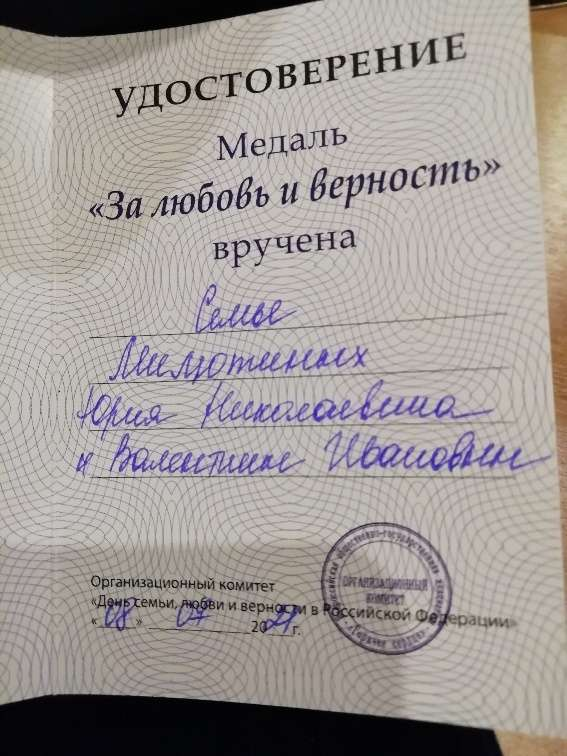 УДОСТОВЕРЕНИЕ
Медаль
«За любовь и верность»
вручена
Семье
Милютиных
Юрия Николаевича
и Валентины Ивановны
Организационный комитет
«День семьи, любви и верности в Российской Федерации»
«08» 07 2021 г.
ОРГАНИЗАЦИОННЫЙ
КОМИТЕТ